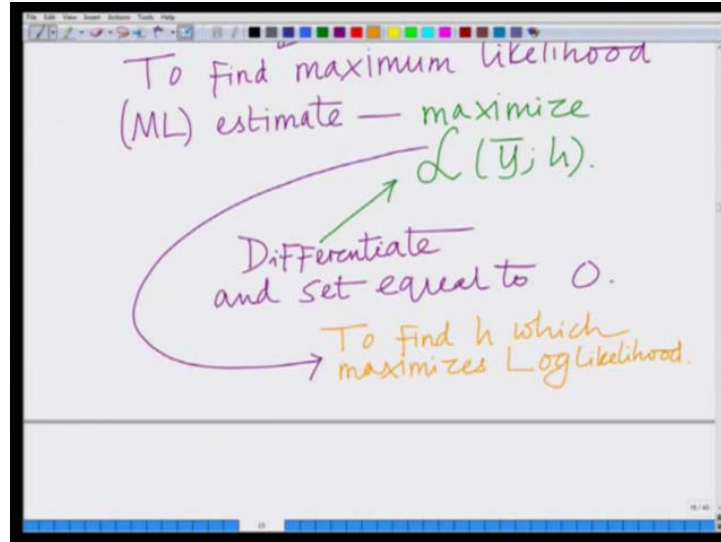 File Edit View Insert Actions Tools Help
To find maximum likelihood
(ML) estimate — maximize
L(ȳ; h).
Differentiate
and set equal to 0.
To find h which
maximizes Log Likelihood.